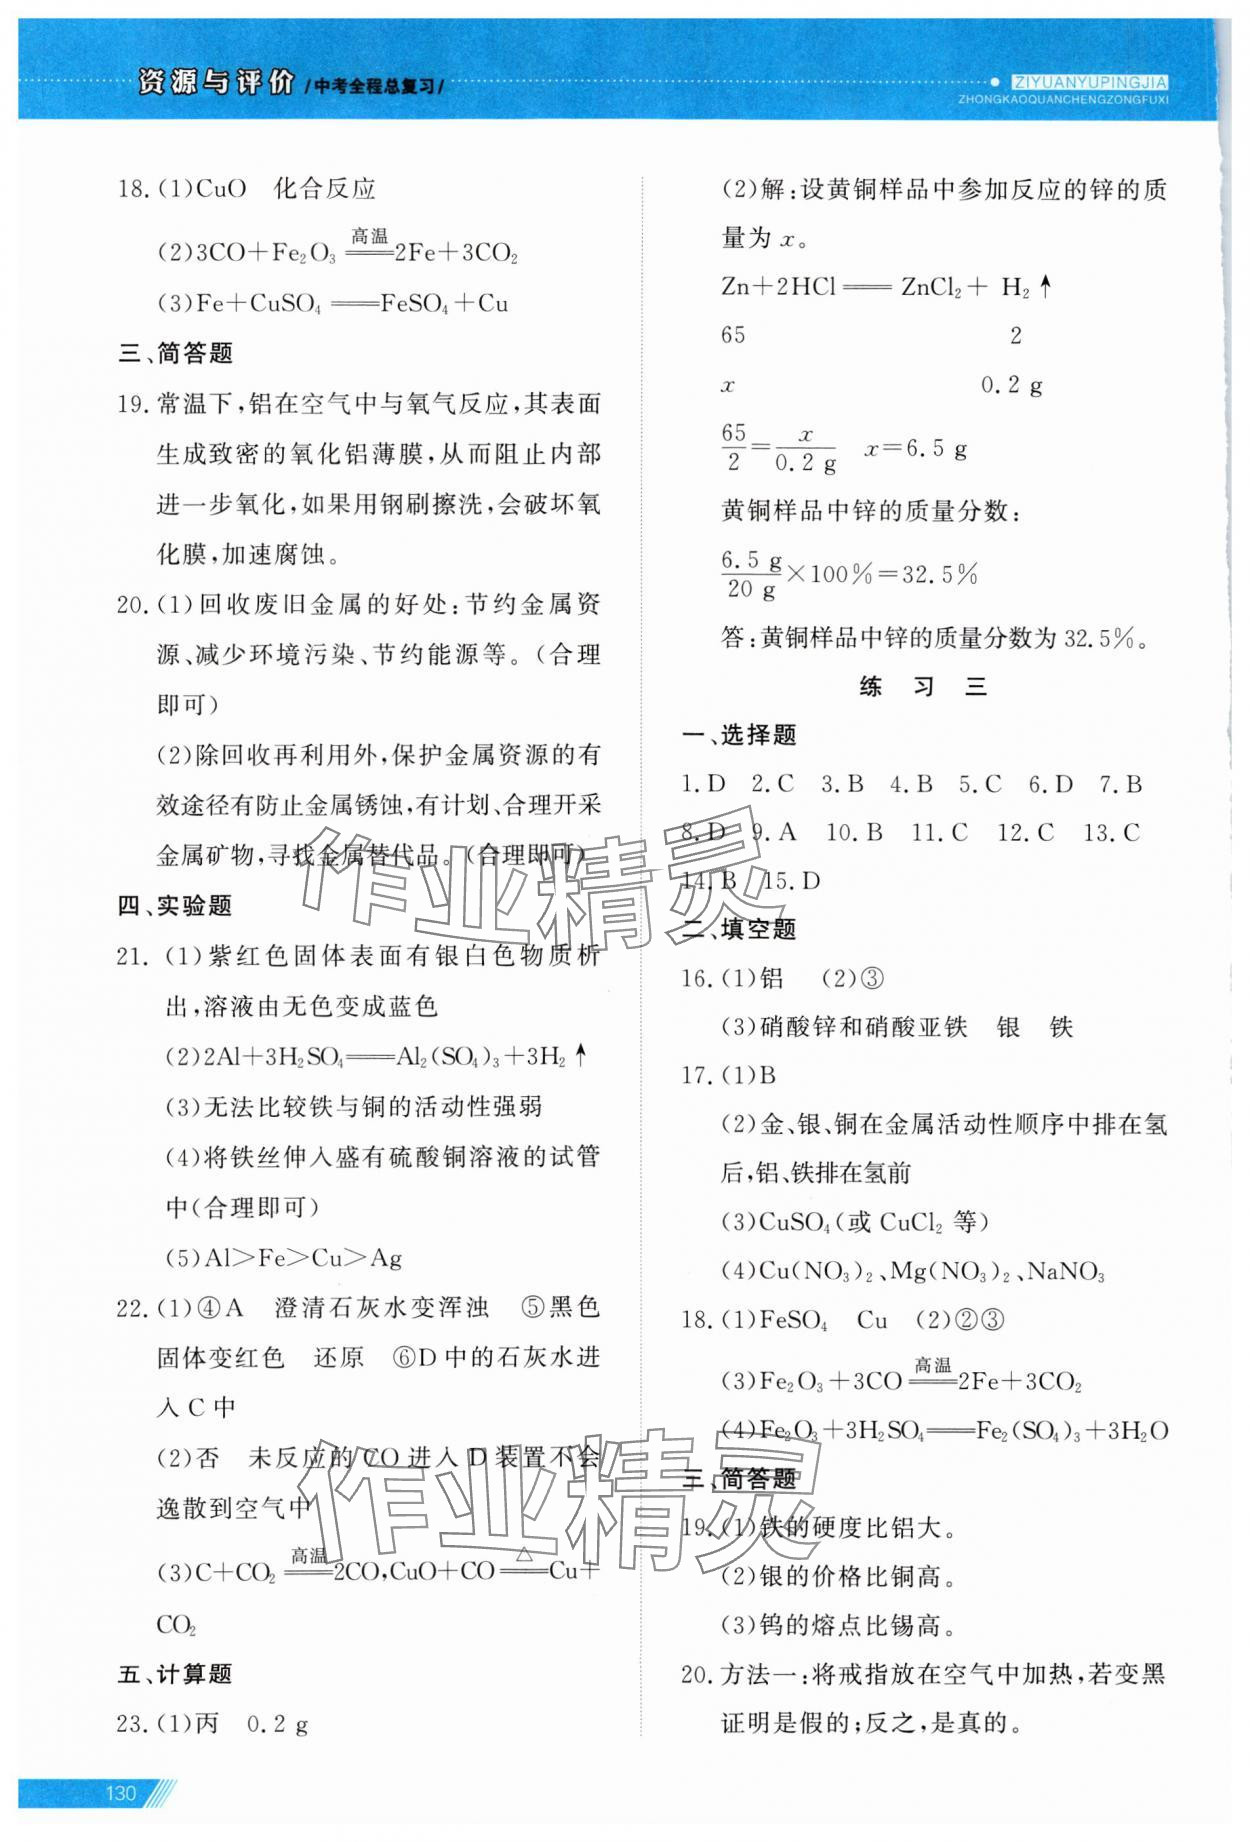 资源与评价 /中考全程总复习/
ZIYUANYUPINGJIA
ZHONGKAOQUANCHENGZONGFUXI
18.(1)CuO 化合反应
(2)3CO+Fe₂O₃ =高温= 2Fe+3CO₂
(3)Fe+CuSO₄ == FeSO₄+Cu
三、简答题
19.常温下,铝在空气中与氧气反应,其表面
生成致密的氧化铝薄膜,从而阻止内部
进一步氧化,如果用钢刷擦洗,会破坏氧
化膜,加速腐蚀。
20.(1)回收废旧金属的好处:节约金属资
源、减少环境污染、节约能源等。(合理
即可)
(2)除回收再利用外,保护金属资源的有
效途径有防止金属锈蚀,有计划、合理开采
金属矿物,寻找金属替代品。(合理即可)
四、实验题
21.(1)紫红色固体表面有银白色物质析
出,溶液由无色变成蓝色
(2)2Al+3H₂SO₄ == Al₂(SO₄)₃+3H₂↑
(3)无法比较铁与铜的活动性强弱
(4)将铁丝伸入盛有硫酸铜溶液的试管
中(合理即可)
(5)Al>Fe>Cu>Ag
22.(1)④A 澄清石灰水变浑浊 ⑤黑色
固体变红色 还原 ⑥D中的石灰水进
入C中
(2)否 未反应的CO进入D装置不会
逸散到空气中
(3)C+CO₂ =高温= 2CO,CuO+CO =△= Cu+
CO₂
五、计算题
23.(1)丙 0.2 g
(2)解:设黄铜样品中参加反应的锌的质
量为 x。
Zn+2HCl == ZnCl₂+ H₂↑
65 2
x 0.2 g
65/2=x/0.2 g x=6.5 g
黄铜样品中锌的质量分数:
6.5 g/20 g×100%=32.5%
答:黄铜样品中锌的质量分数为32.5%。
练 习 三
一、选择题
1.D 2.C 3.B 4.B 5.C 6.D 7.B
8.D 9.A 10.B 11.C 12.C 13.C
14.B 15.D
二、填空题
16.(1)铝 (2)③
(3)硝酸锌和硝酸亚铁 银 铁
17.(1)B
(2)金、银、铜在金属活动性顺序中排在氢
后,铝、铁排在氢前
(3)CuSO₄(或 CuCl₂ 等)
(4)Cu(NO₃)₂、Mg(NO₃)₂、NaNO₃
18.(1)FeSO₄ Cu (2)②③
(3)Fe₂O₃+3CO =高温= 2Fe+3CO₂
(4)Fe₂O₃+3H₂SO₄ == Fe₂(SO₄)₃+3H₂O
三、简答题
19.(1)铁的硬度比铝大。
(2)银的价格比铜高。
(3)钨的熔点比锡高。
20.方法一:将戒指放在空气中加热,若变黑
证明是假的;反之,是真的。
作业精灵
作业精灵
130